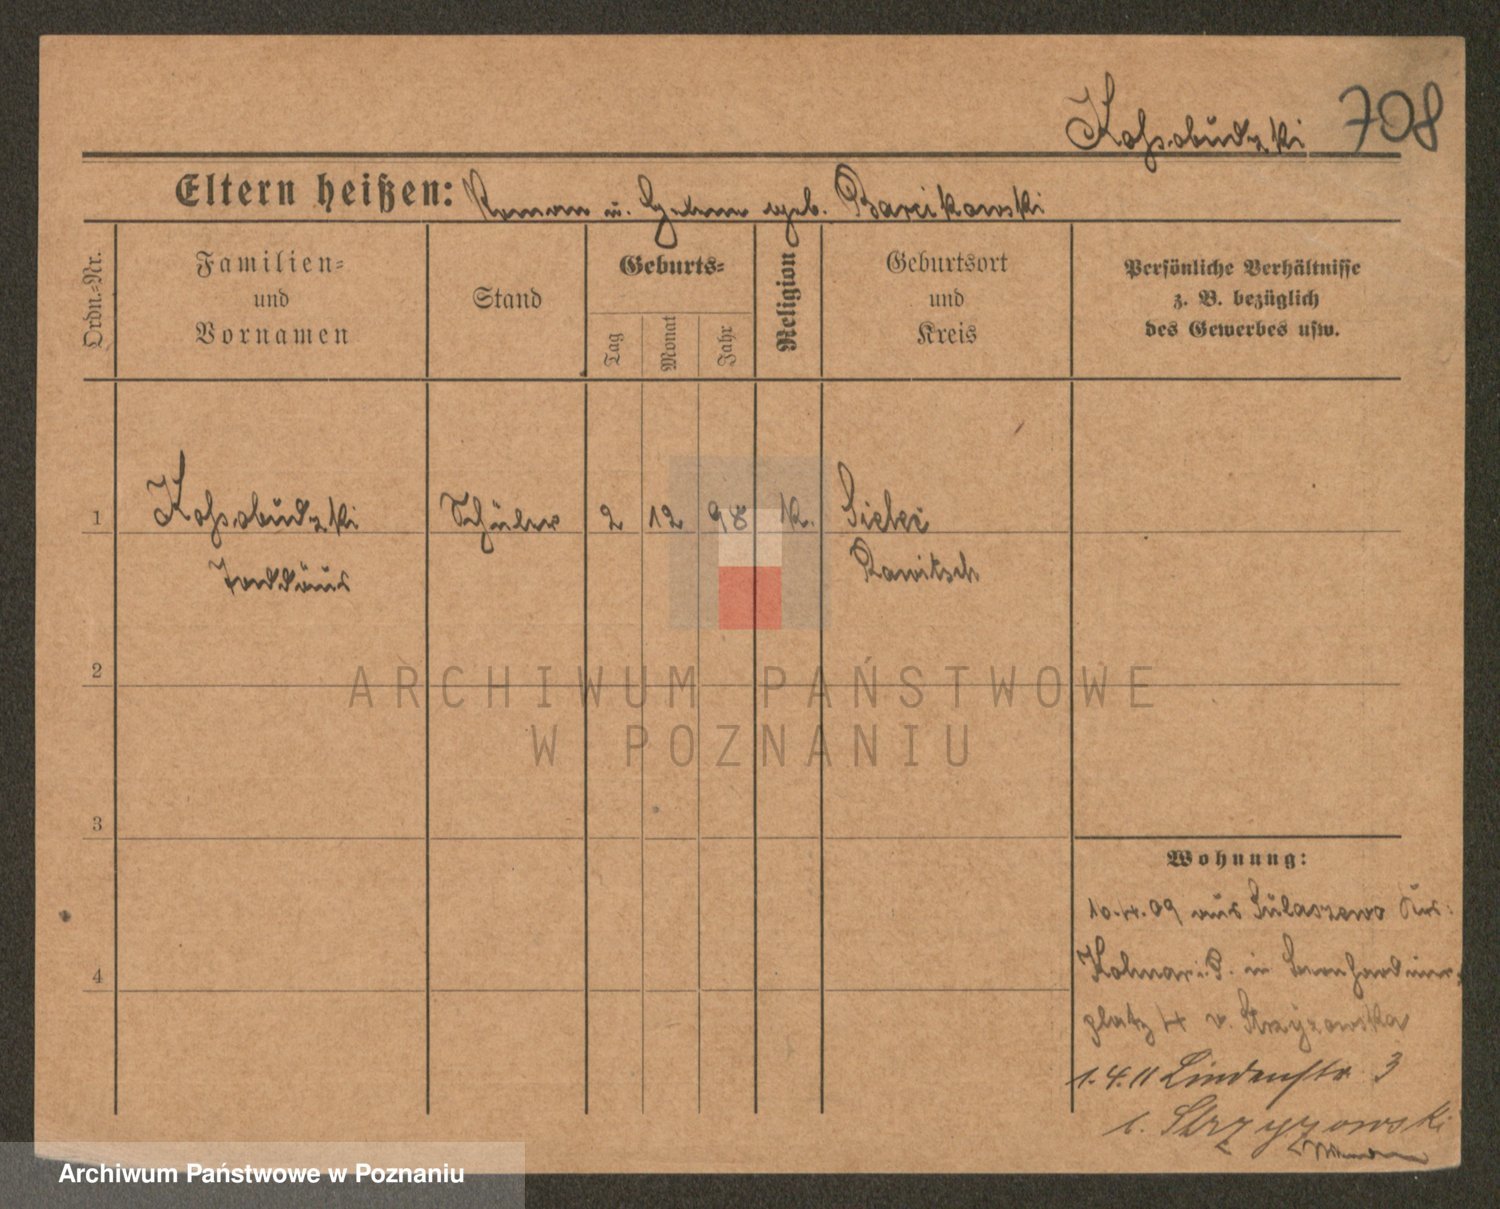 Kossobudzki 708
Eltern heißen: Roman u. Helene geb. Barcikowski
Ordn.-Nr.
Familien-
und
Vornamen
Stand
Geburts-
Tag
Monat
Jahr
Religion
Geburtsort
und
Kreis
Persönliche Verhältnisse
z. B. bezüglich
des Gewerbes usw.
1 Kossobudzki Schüler 2 12 98 k. Sielec
Taddäus Rawitsch
2
ARCHIWUM PAŃSTWOWE
W POZNANIU
3
Wohnung:
10.4.09 aus Sulaszewo Krs:
Kolmar i. P. in Bernhardiner-
platz 4 v. Strzyzowska
4
1.4.11 Lindenstr. 3
b. Strzyzowski
Archiwum Państwowe w Poznaniu